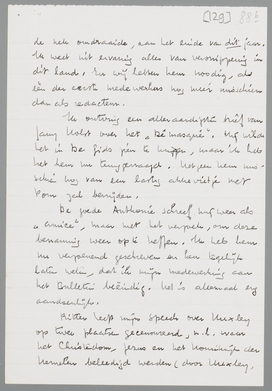 [129] 88b
de nek omdraaide, aan het einde van dit jaar.
Ik weet uit ervaring alles van versnippering in
dit land. En wij hebben hem noodig, als
één der eerste medewerkers nog meer misschien
dan als redacteur.
Ik ontving een alleraardigste brief van
Jany Holst over het "Bé masqué". Hij wilde
het in De Gids pien te , maar ik heb
het hem nu teruggevraagd. Hetgeen hem mis-
schien nog van een lastig akkevietje met
Kom zal bevrijden.
De goede Anthonie schreef mij weer als
"amice", maar met het verzoek, om deze
benaming weer op te heffen. Ik heb hem
nu verzoenend geschreven en hem tegelijk
laten weten, dat ik mijn medewerking aan
het Bulletin beëindig. Het is allemaal erg
aandoenlijk.
Ritter heeft mijn speech over Huxley
op twee plaatsen gecensureerd, n.l. waar
het Christendom, Jezus en het Koninkrijk der
Hemelen beleedigd werden (door Huxley,